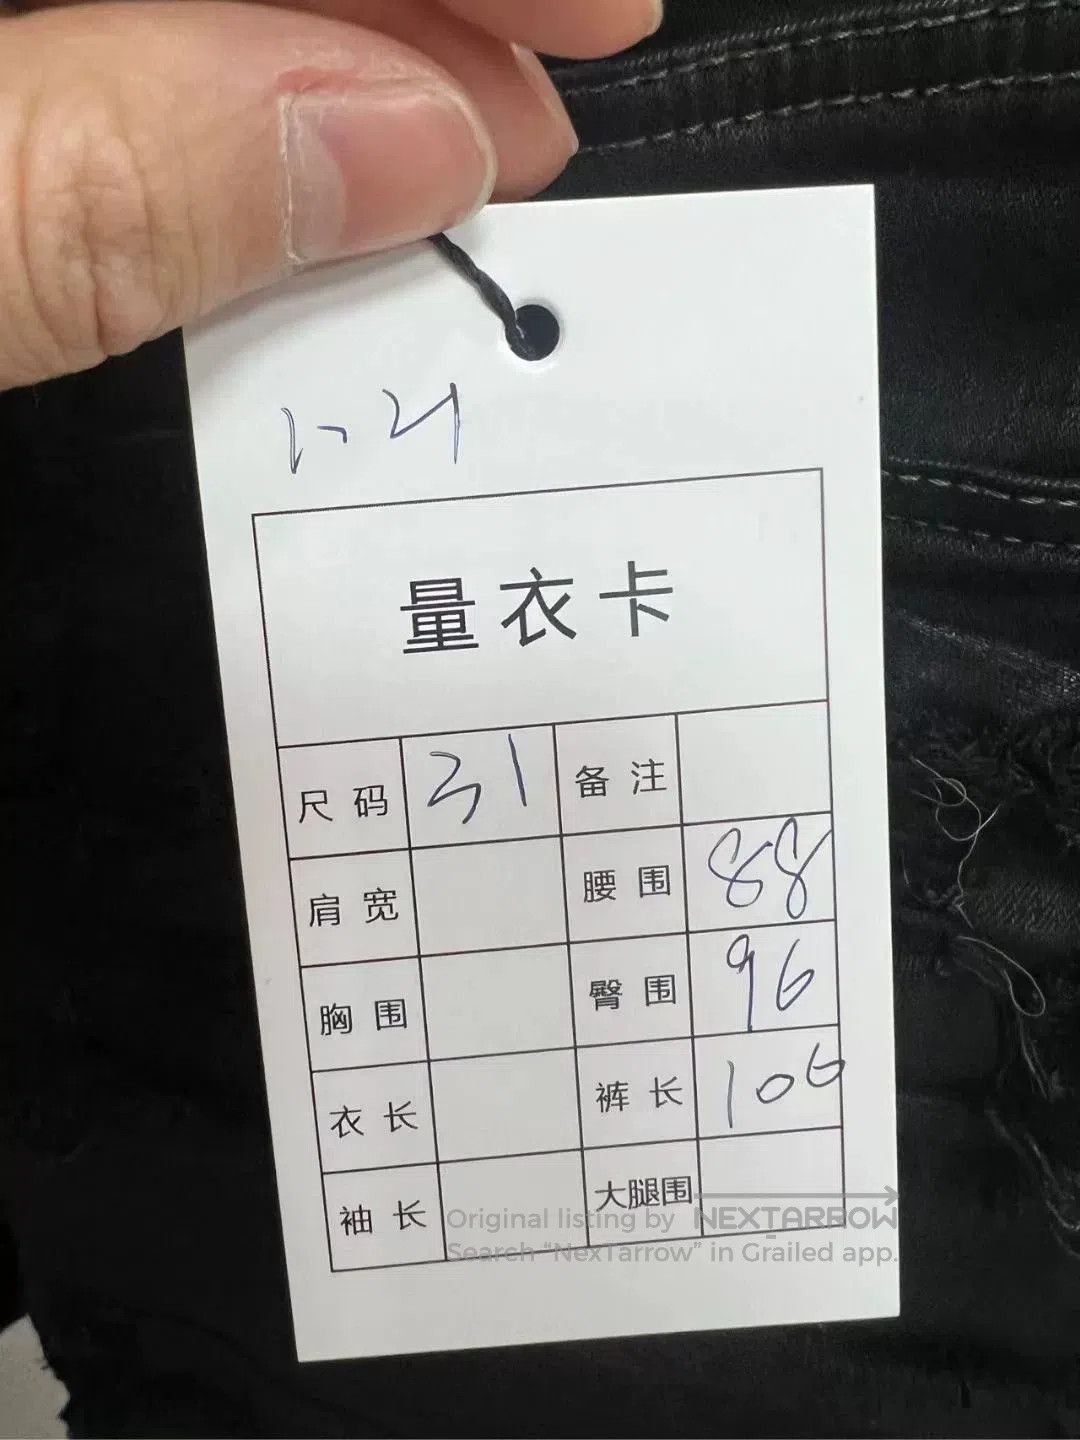 量衣卡
尺码 31 备注
肩宽 腰围 88
胸围 臀围 96
衣长 裤长 106
袖长 大腿围
Original listing by NEXTARROW
Search “NexTarrow” in Grailed app.